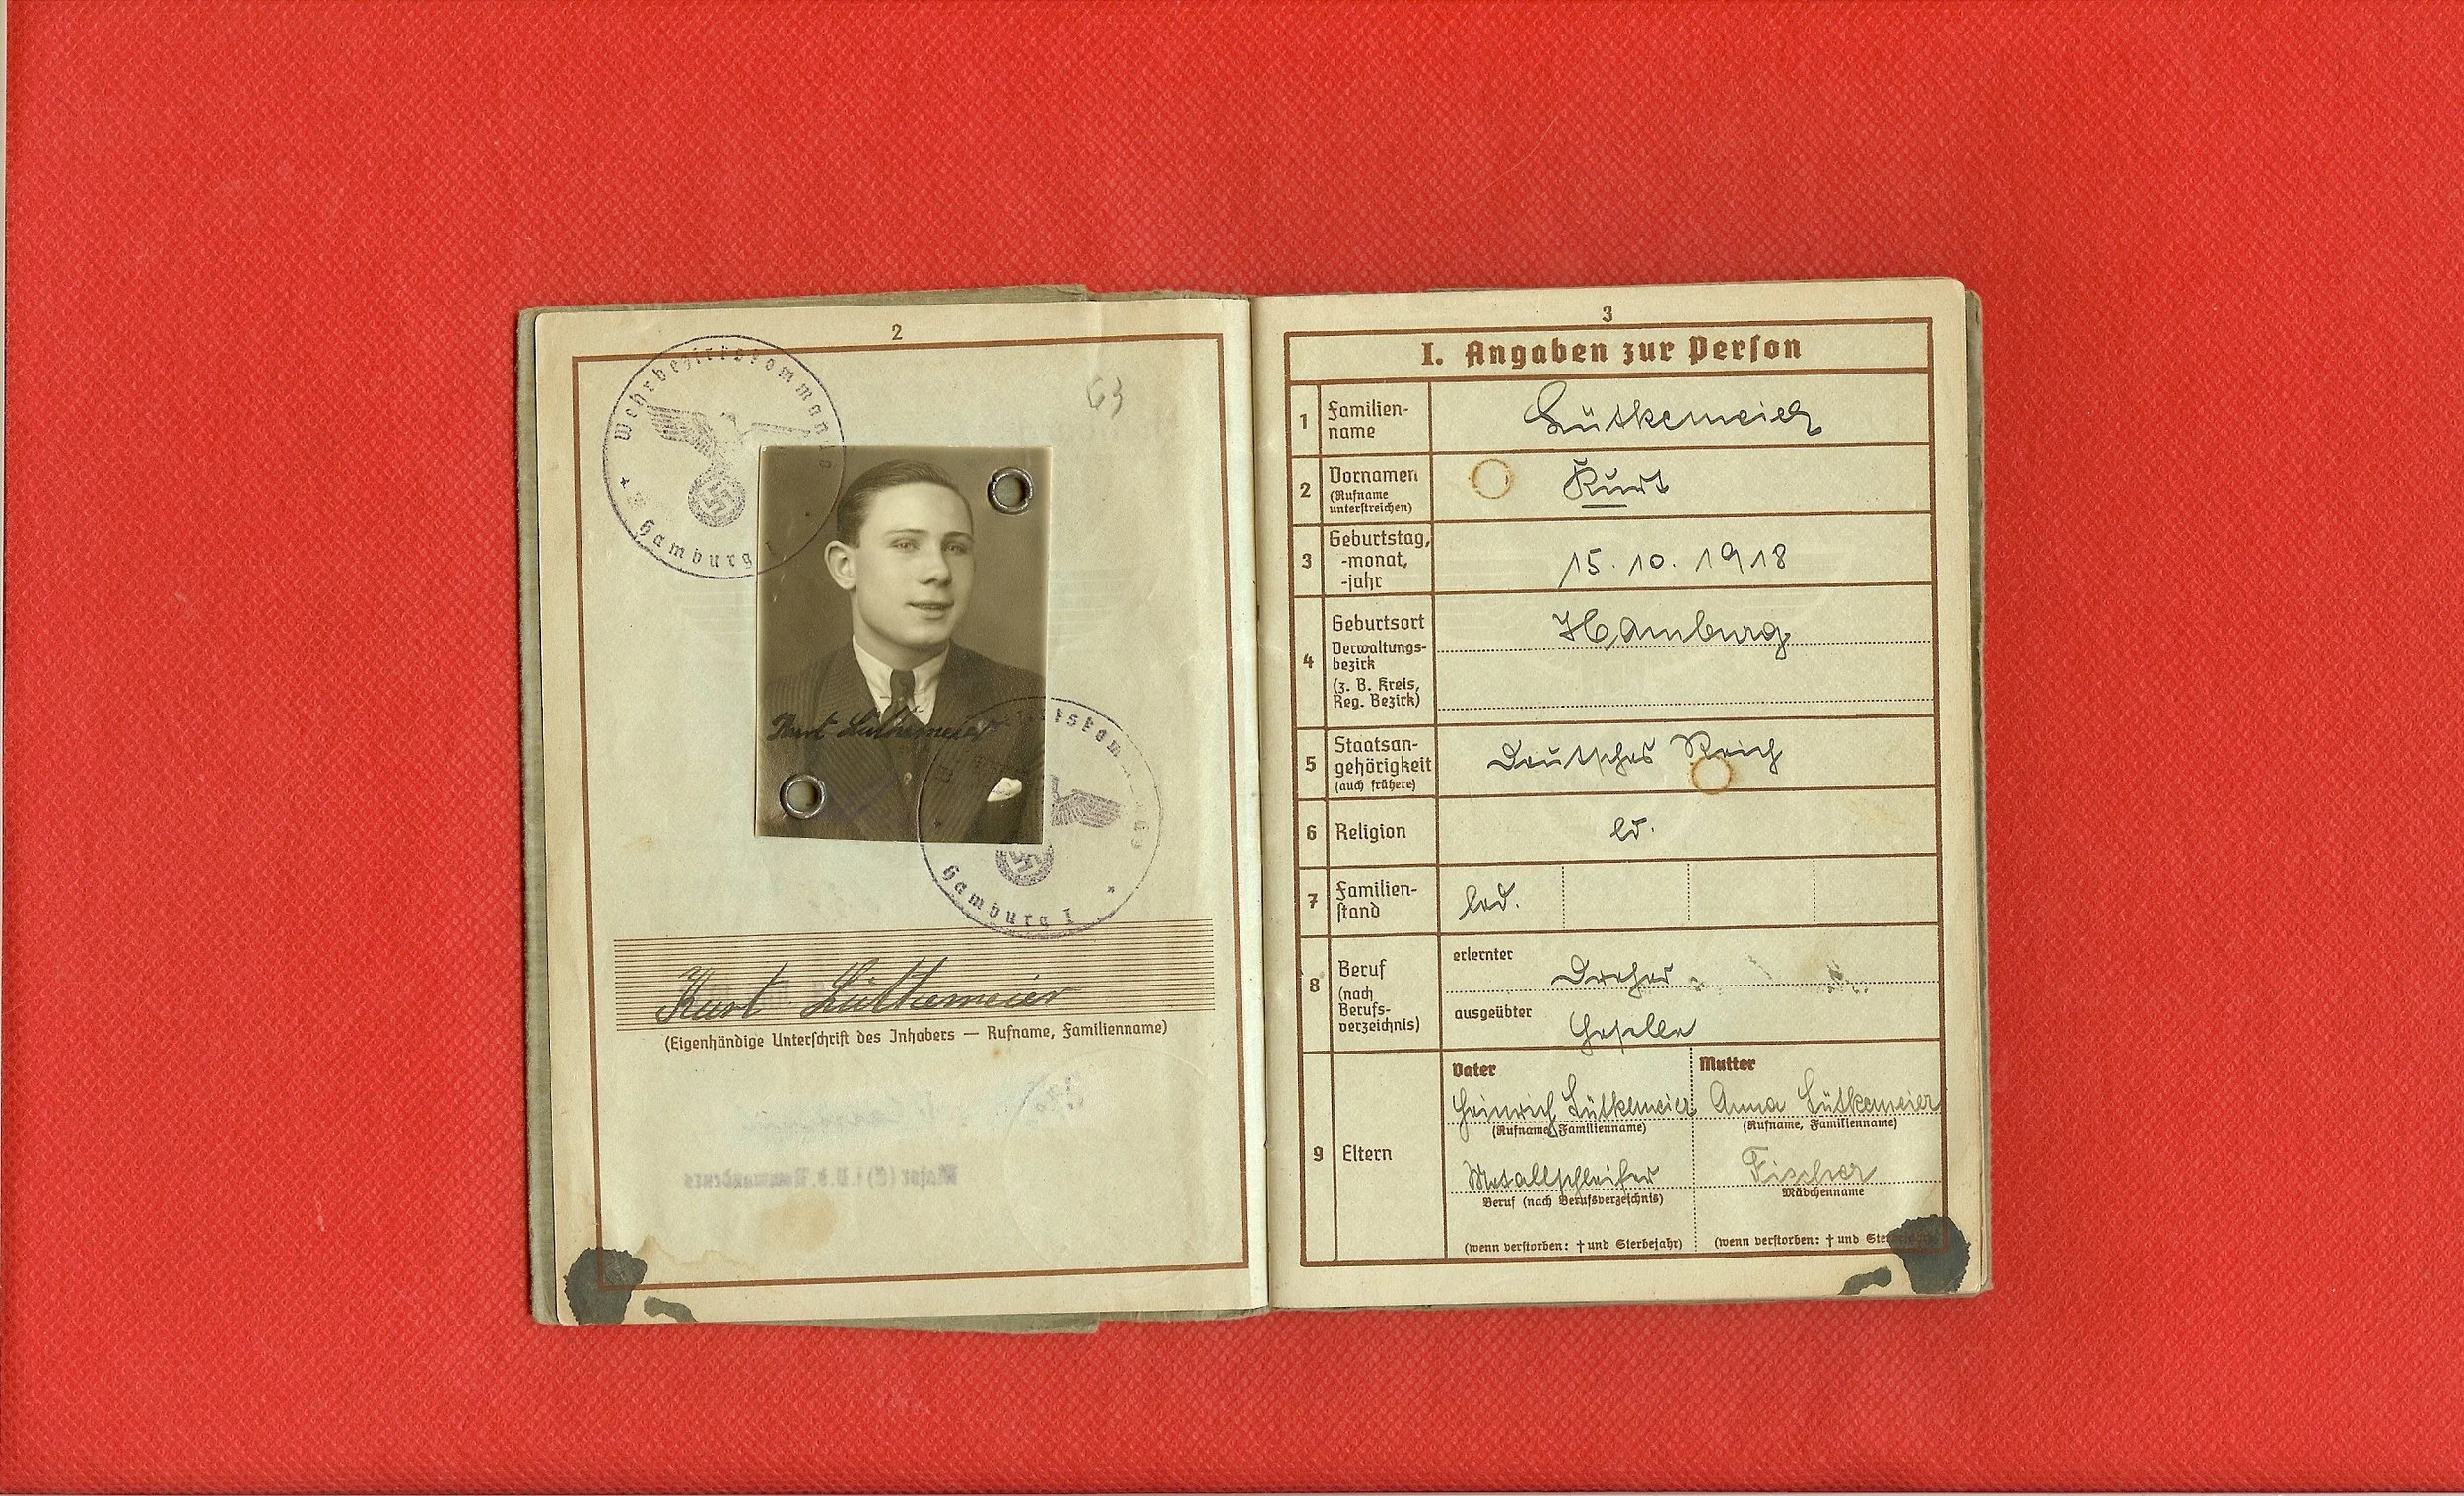 2
Wehrbezirkskommando
Hamburg I
63
Kurt Lütkemeier
Hamburg I
Kurt Lütkemeier
(Eigenhändige Unterschrift des Inhabers — Rufname, Familienname)
3
I. Angaben zur Person
1 Familien-
name
Lütkemeier
2 Vornamen
(Rufname
unterstreichen)
Kurt
3 Geburtstag,
-monat,
-jahr
15. 10. 1918
4 Geburtsort
Verwaltungs-
bezirk
(z. B. Kreis,
Reg. Bezirk)
Hamburg
5 Staatsan-
gehörigkeit
(auch frühere)
Deutsches Reich
6 Religion
ev.
7 Familien-
stand
led.
8 Beruf
(nach
Berufs-
verzeichnis)
erlernter
Dreher
ausgeübter
Geselle
9 Eltern
Vater
Heinrich Lütkemeier
(Rufname, Familienname)
Metallschleifer
Beruf (nach Berufsverzeichnis)
(wenn verstorben: † und Sterbejahr)
Mutter
Anna Lütkemeier
(Rufname, Familienname)
Fischer
Mädchenname
(wenn verstorben: † und Sterbejahr)